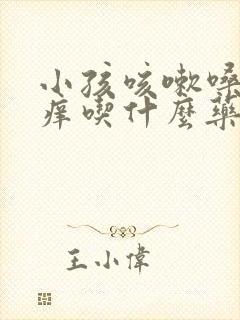 小孩咳嗽嗓
痒喫什麼藥
王小偉